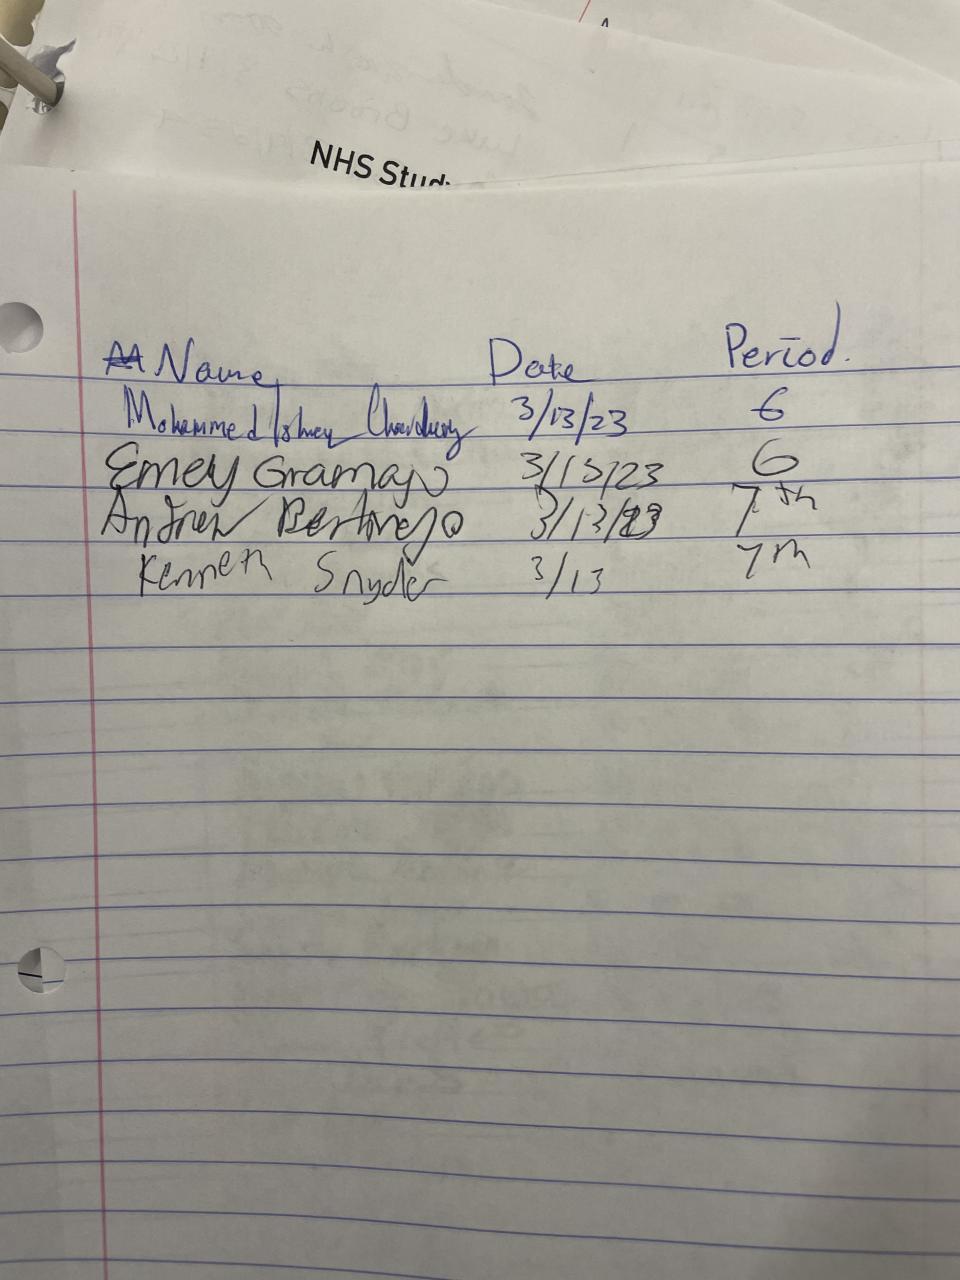 NHS Stud
Name Date Period.
Mohammed Chowdhury 3/13/23 6
Emely Gramajo 3/13/23 6
Andrew 3/13/23 7th
Kenneth Snyder 3/13 7th